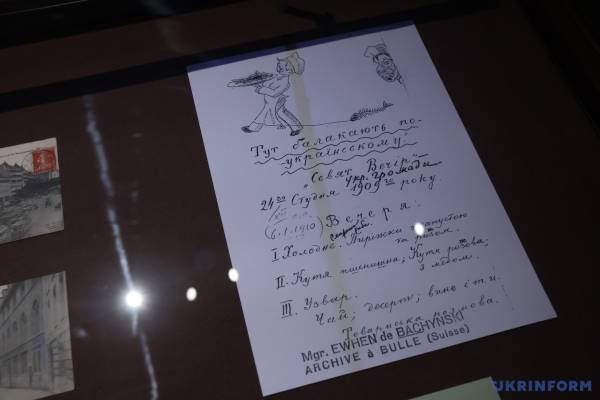 Тут балакають по-
українському"
"Совят Вечір"
укр. громади
24го Студня 1909го року.
(6.I.1910)
Вечеря:
I Холодне. Пиріжки з капустою
та рижом.
II. Кутя пшенишна; Кутя рижова;
з медом.
III. Узвар.
Чай; десерт; вино і т.і.
Товариська розмова.
Mgr. EWHEN de BACHYNSKI
ARCHIVE à BULLE (Suisse)
UKRINFORM